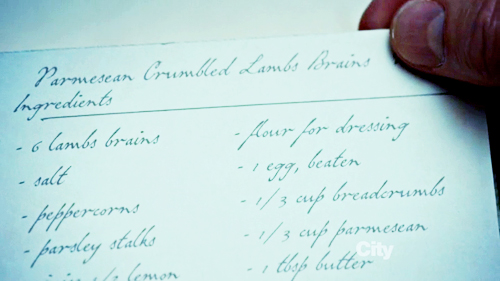 Parmesean Crumbled Lambs Brains
Ingredients
- 6 lambs brains
- salt
- peppercorns
- parsley stalks
1/2 lemon
- flour for dressing
- 1 egg, beaten
- 1/3 cup breadcrumbs
- 1/3 cup parmesean
- 1 tbsp butter
City